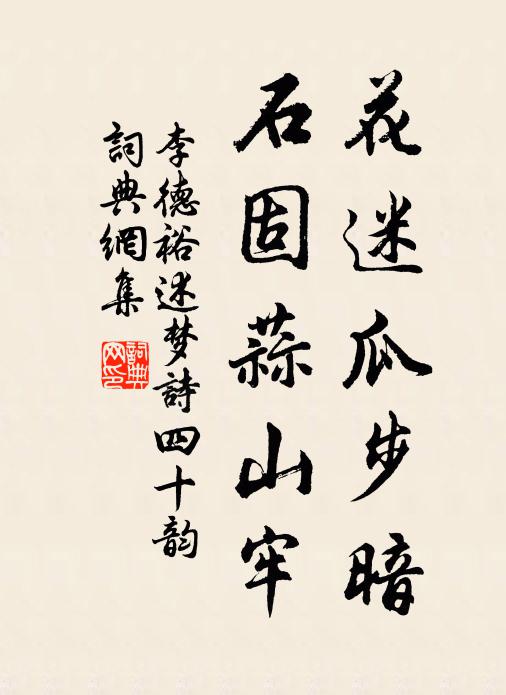 花迷瓜步暗
石固蒜山牢
李德裕述梦詩四十韵
詞典網集
詞典网印